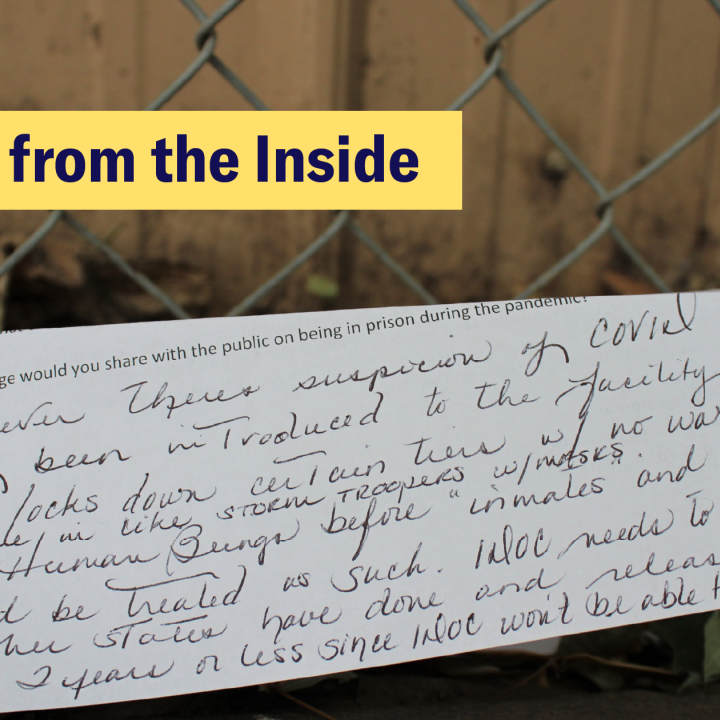 from the Inside
ge would you share with the public on being in prison during the pandemic?
ever theres suspicion of COVID
been introduced to the facility
locks down certain tiers w/ no war
in like STORM TROOPERS w/MASKS.
Human Beings before "inmates" and
d be treated as such. IDOC needs to
her states have done and releas
2 years or less since IDOC won't be able t